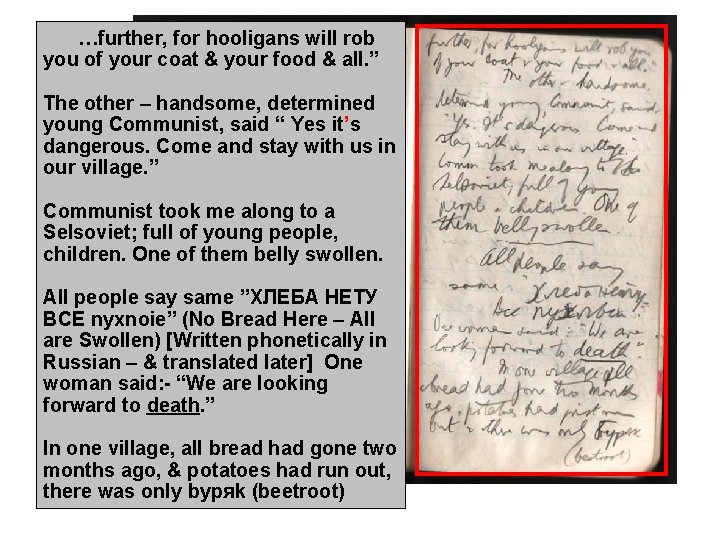 …further, for hooligans will rob
you of your coat & your food & all. ”
The other – handsome, determined
young Communist, said “ Yes it’s
dangerous. Come and stay with us in
our village. ”
Communist took me along to a
Selsoviet; full of young people,
children. One of them belly swollen.
All people say same ”ХЛЕБА НЕТУ
ВСЕ nyxnoie” (No Bread Here – All
are Swollen) [Written phonetically in
Russian – & translated later] One
woman said: - “We are looking
forward to death. ”
In one village, all bread had gone two
months ago, & potatoes had run out,
there was only byряk (beetroot)
further, for hooligans will rob you
of your coat & your food & all."
The other - handsome,
determined young Communist, said
"Yes. It's dangerous. Come and
stay with us in our village."
Comm. took me along to
Selsoviet; full of young
people & children. One of
them belly swollen.
All people say
same
One women said: "We are
looking forward to death."
In one village all
bread had gone two months
ago, potatoes had run
but & there was only Буряк
(beetroot)